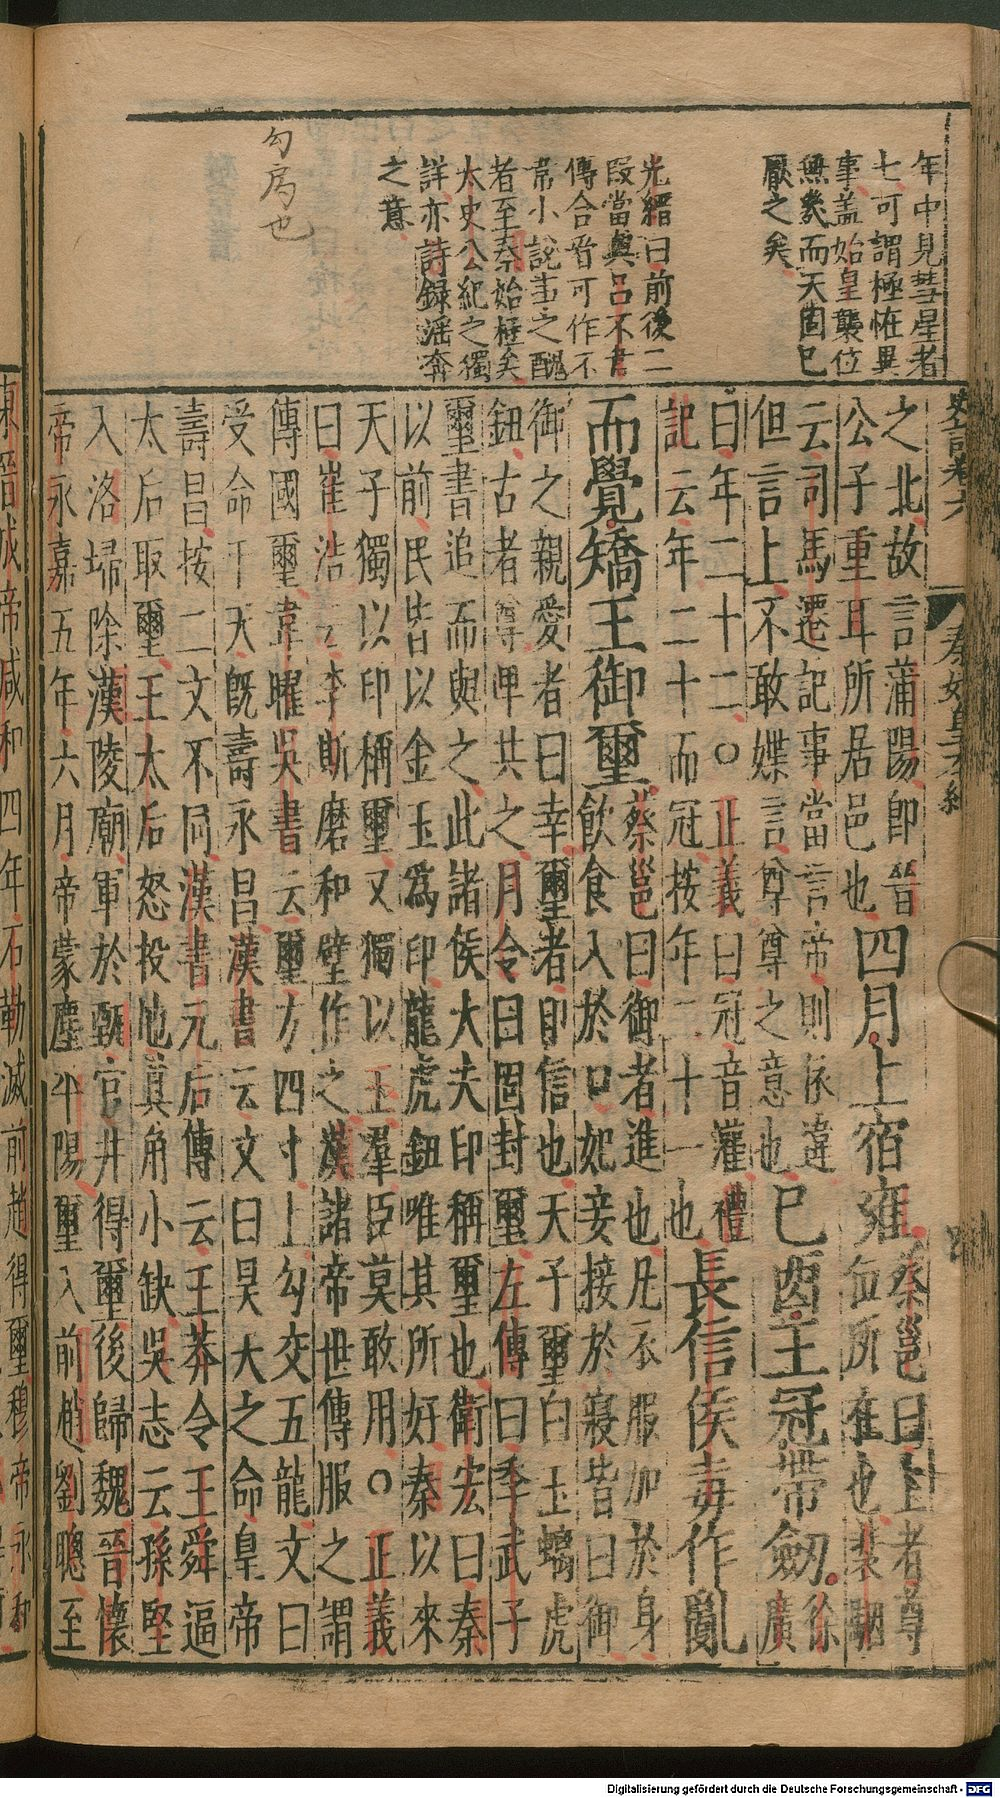 年中見彗星者
七可謂極恠異
事盖始皇襲位
無幾而天固已
厭之矣
光縉曰前後二
段當與呂不韋
傳合㸔可作不
常小說畫之醜
者至秦始極矣
太史公紀之獨
詳亦詩録滛奔
之意
勾
也
史記卷六
秦始皇本紀
之北故言蒲陽即晉
公子重耳所居邑也
四月上宿雍
蔡邕曰上者尊
位所在也裴駰
云司馬遷記事當言帝則依違
但言上不敢媟言尊尊之意也
已酉王冠帶劒
徐廣
曰年二十二○正義曰冠音灌禮
記云年二十而冠按年二十一也
長信侯毐作亂
而覺矯王御璽
蔡邕曰御者進也凡衣服加於身
飲食入於口妃妾接於寢皆曰御
御之親愛者曰幸璽者印信也天子璽白玉螭虎
鈕古者尊卑共之月令曰固封璽左傳曰季武子
璽書追而與之此諸侯大夫印稱璽也衛宏曰秦
以前民皆以金玉為印龍虎鈕唯其所好秦以來
天子獨以印稱璽又獨以玉羣臣莫敢用○正義
曰崔浩云李斯磨和璧作之漢諸帝世傳服之謂
傳國璽韋曜吳書云璽方四寸上勾交五龍文曰
受命于天旣壽永昌漢書云文曰昊天之命皇帝
壽昌按二文不同漢書元后傳云王莽令王舜逼
太后取璽王太后怒投地其角小缺吳志云孫堅
入洛埽除漢陵廟軍於甄官井得璽後歸魏晉懷
帝永嘉五年六月帝蒙塵平陽璽入前趙劉聰至
東晉成帝咸和四年石勒滅前趙得璽穆帝永和
Digitalisierung gefördert durch die Deutsche Forschungsgemeinschaft - DFG